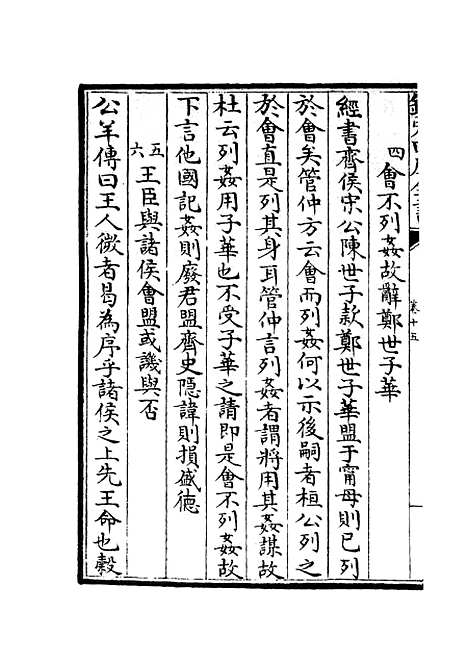 四會不列姦故辭鄭世子華
經書齊侯宋公陳世子款鄭世子華盟于甯母則已列
於會矣管仲方云會而列姦何以示後嗣者桓公列之
於會直是列其身耳管仲言列姦者謂將用其姦謀故
杜云列姦用子華也不受子華之請即是會不列姦故
下言他國記姦則廢君盟齊史隱諱則損盛德
五六王臣與諸侯會盟或譏與否
公羊傳曰王人微者曷為序乎諸侯之上先王命也穀
卷十五